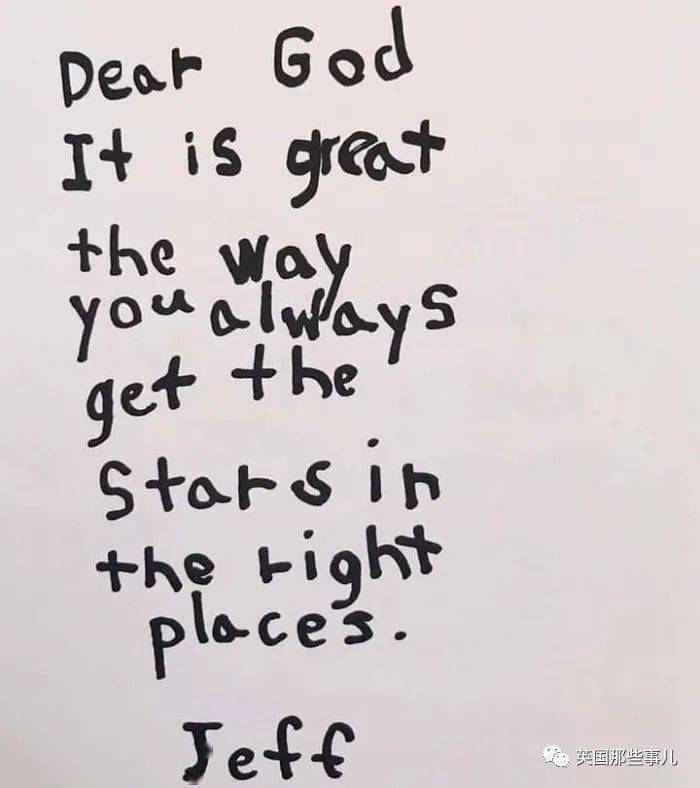 Dear God
It is great
the way
you always
get the
stars in
the right
places.
Jeff
英国那些事儿